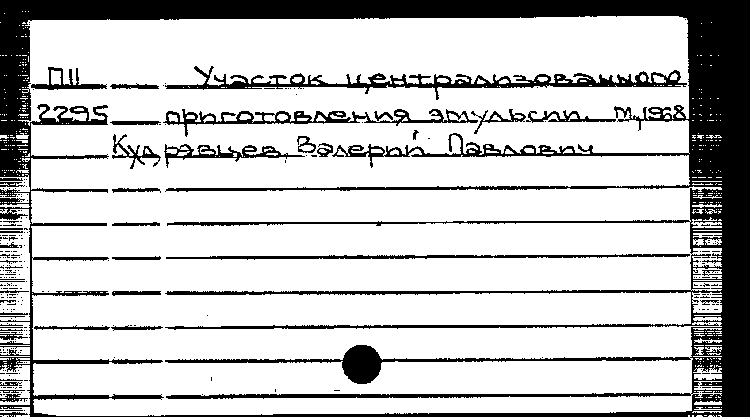 П11 Участок централизованного
2295 приготовления эмульсии. М., 1968
Кудрявцев, Валерий Павлович